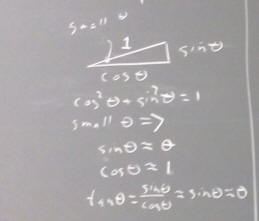 small θ
1
sinθ
cosθ
cos²θ + sin²θ = 1
small θ =>
sinθ ≈ θ
cosθ ≈ 1
tanθ = sinθ/cosθ ≈ sinθ ≈ θ